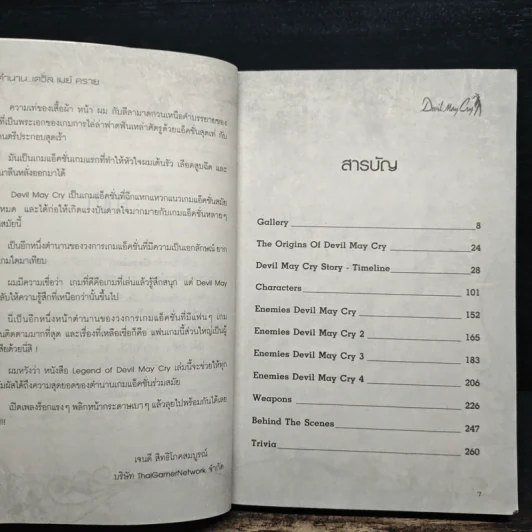 ตำนาน เดวิล เมย์ คราย
ความเท่ของเสื้อผ้า หน้า ผม กับลีลามาดกวนเหนือคำบรรยายของ
ที่เป็นพระเอกของเกมการไล่ล่าฟาดฟันเหล่าศัตรูด้วยแอ็คชั่นสุดเท่ กับ
นตรีประกอบสุดเร้า
มันเป็นเกมแอ็คชั่นเกมแรกที่ทำให้หัวใจผมเต้นรัว เลือดสูบฉีด และ
หลั่งออกมาได้
Devil May Cry เป็นเกมแอ็คชั่นที่ฉีกแหกแหวกแนวเกมแอ็คชั่นสมัย
หมด และได้ก่อให้เกิดแรงบันดาลใจมากมายกับเกมแอ็คชั่นหลายๆ
สมัยนี้
เป็นอีกหนึ่งตำนานของวงการเกมแอ็คชั่นที่มีความเป็นเอกลักษณ์ ยาก
เกมใดมาเทียบ
ผมมีความเชื่อว่า เกมที่ดีคือเกมที่เล่นแล้วรู้สึกสนุก แต่ Devil May
ให้ความรู้สึกที่เหนือกว่านั้นขึ้นไป
นี่เป็นอีกหนึ่งหน้าตำนานของวงการเกมแอ็คชั่นที่มีแฟนๆ เกม
ติดตามมากที่สุด และเรื่องที่เหลือเชื่อก็คือ แฟนเกมนี้ส่วนใหญ่เป็นผู้
ด้วยนี่สิ !
ผมหวังว่า หนังสือ Legend of Devil May Cry เล่มนี้จะช่วยให้ทุก
ได้ถึงความสุดยอดของตำนานเกมแอ็คชั่นร่วมสมัย
เปิดเพลงร็อกแรงๆ พลิกหน้ากระดาษเบาๆ แล้วลุยไปพร้อมกันได้เลย
!!
เจนดี สิทธิโภคสมบูรณ์
บริษัท ThaiGamerNetwork จำกัด
Devil May Cry
สารบัญ
Gallery 8
The Origins Of Devil May Cry 24
Devil May Cry Story - Timeline 28
Characters 101
Enemies Devil May Cry 152
Enemies Devil May Cry 2 165
Enemies Devil May Cry 3 183
Enemies Devil May Cry 4 206
Weapons 226
Behind The Scenes 247
Trivia 260
7